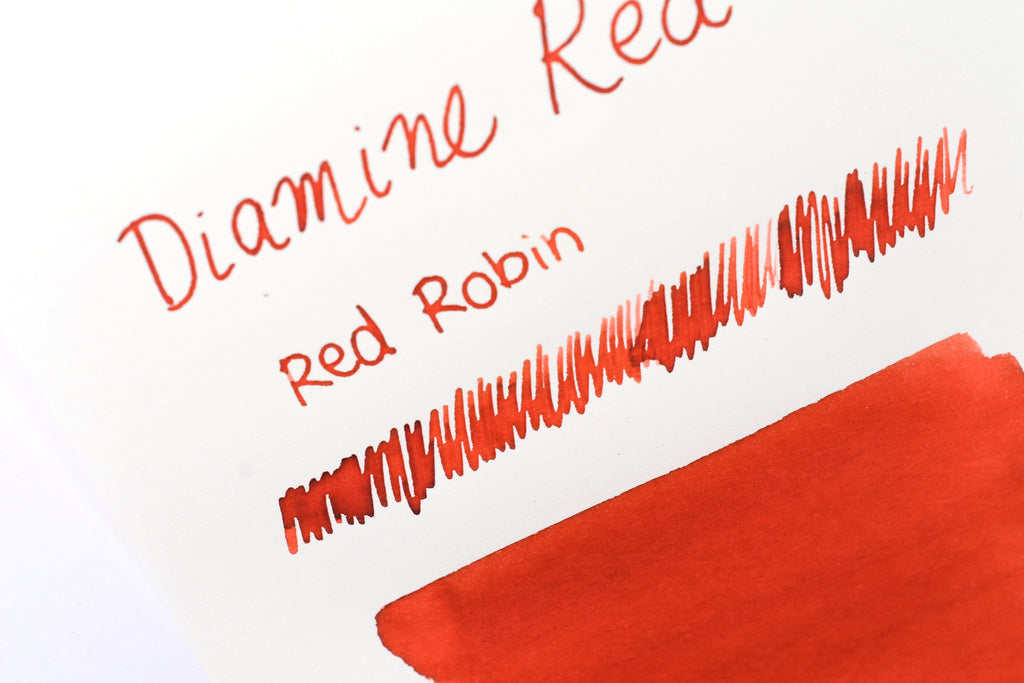 Diamine Red
Red Robin